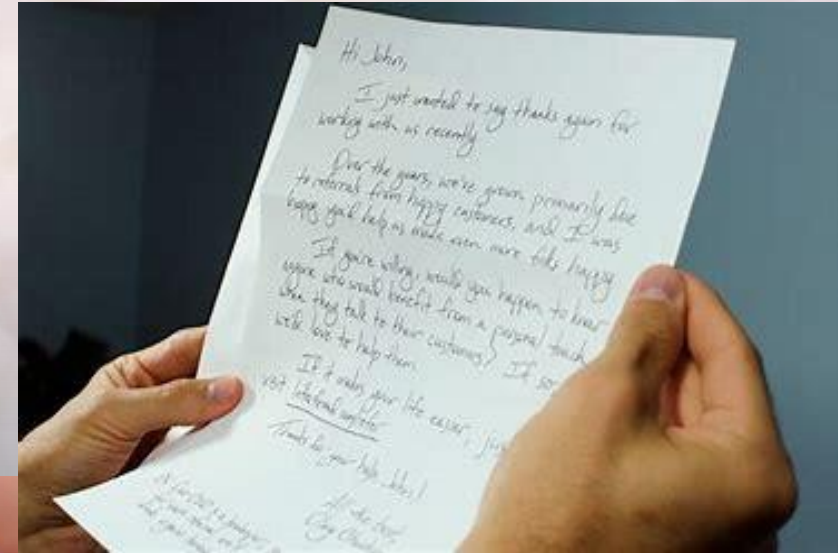 Hi John,
I just wanted to say thanks again for
working with us recently
Over the years, we've grown primarily due
to referrals from happy customers, and I was
hoping you'd help us make even more folks happy
If you're willing, would you happen to know
anyone who would benefit from a personal touch
when they talk to their customers? If so
we'd love to help them.
If it makes your life easier, jus
visit
Thanks for your help, John!
All the best,